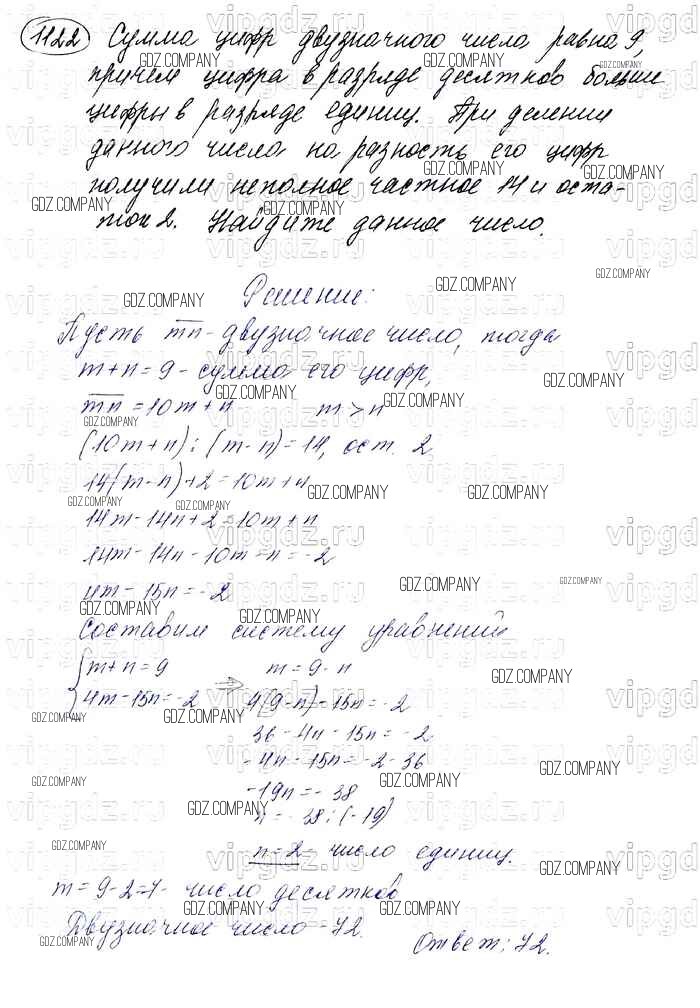 1122 Сумма цифр двузначного числа равна 9,
причём цифра в разряде десятков больше
цифры в разряде единиц. При делении
данного числа на разность его цифр
получили неполное частное 14 и оста-
ток 2. Найдите данное число.
Решение:
Пусть mn - двузначное число, тогда
m + n = 9 - сумма его цифр,
mn = 10m + n m > n
(10m + n) : (m - n) = 14, ост. 2
14(m - n) + 2 = 10m + n
14m - 14n + 2 = 10m + n
14m - 14n - 10m - n = -2
4m - 15n = -2
Составим систему уравнений
{ m + n = 9 m = 9 - n
4m - 15n = -2 => 4(9 - n) - 15n = -2
36 - 4n - 15n = -2
-4n - 15n = -2 - 36
-19n = -38
n = -38 : (-19)
n = 2 - число единиц.
m = 9 - 2 = 7 - число десятков
Двузначное число - 72.
Ответ: 72.
GDZ.COMPANY
vipgdz.ru